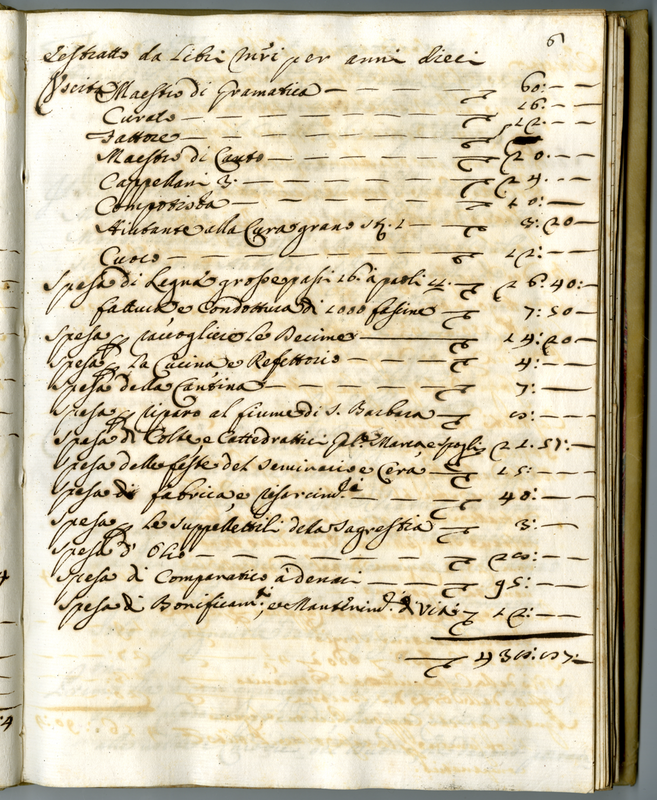 6
Restratto da Libri Mri per anni dieci
Uscita Maestro di Gramatica — 60:—
Curato — 16:—
Fattore — 12:—
Maestro di Canto — 20:—
Cappellani 3: — 24:—
Computista — 10:—
Aiutante alla Cura grano st: 1 — 3:20
Cuoco — 12:—
Spesa di Legna grosse passi 16: à paoli — 26:40:
fattura e Condottura di 1000 fascine — 7:50
Spesa p raccogliere le Decime — 14:20
Spesa p La Cucina e Refettorio — 4:—
Spesa della Cantina — 7:—
Spesa p riparo al fiume di S. Barbara — 8:—
Spesa di Colte e Cattedratici Marca, e spogli 21:57:
Spesa delle feste del Seminario e Cera — 15:—
Spesa di fabrica, e resarcimti — 40:—
Spesa p le suppellettili della Sagrestia — 3:—
Spesa d' Olio — 28:—
Spesa di Companatico à denari — 95:—
Spesa di Bonificamti, e Mantenimto di Viti — 12:—
438:87: